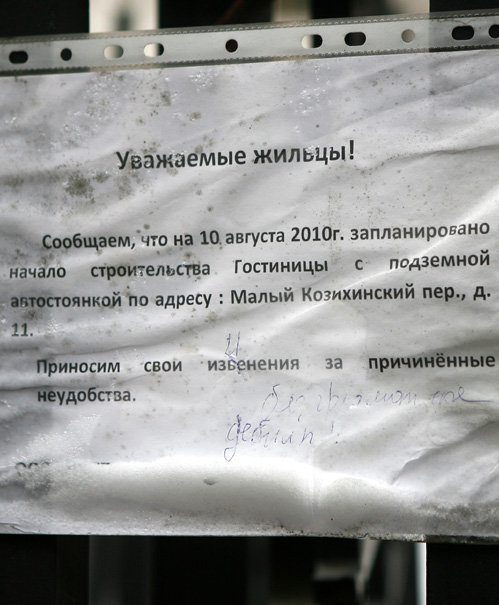 Уважаемые жильцы!
Сообщаем, что на 10 августа 2010г. запланировано
начало строительства Гостиницы с подземной
автостоянкой по адресу : Малый Козихинский пер., д.
11.
и
Приносим свои извенения за причинённые
неудобства.
безграмотные
дебилы!